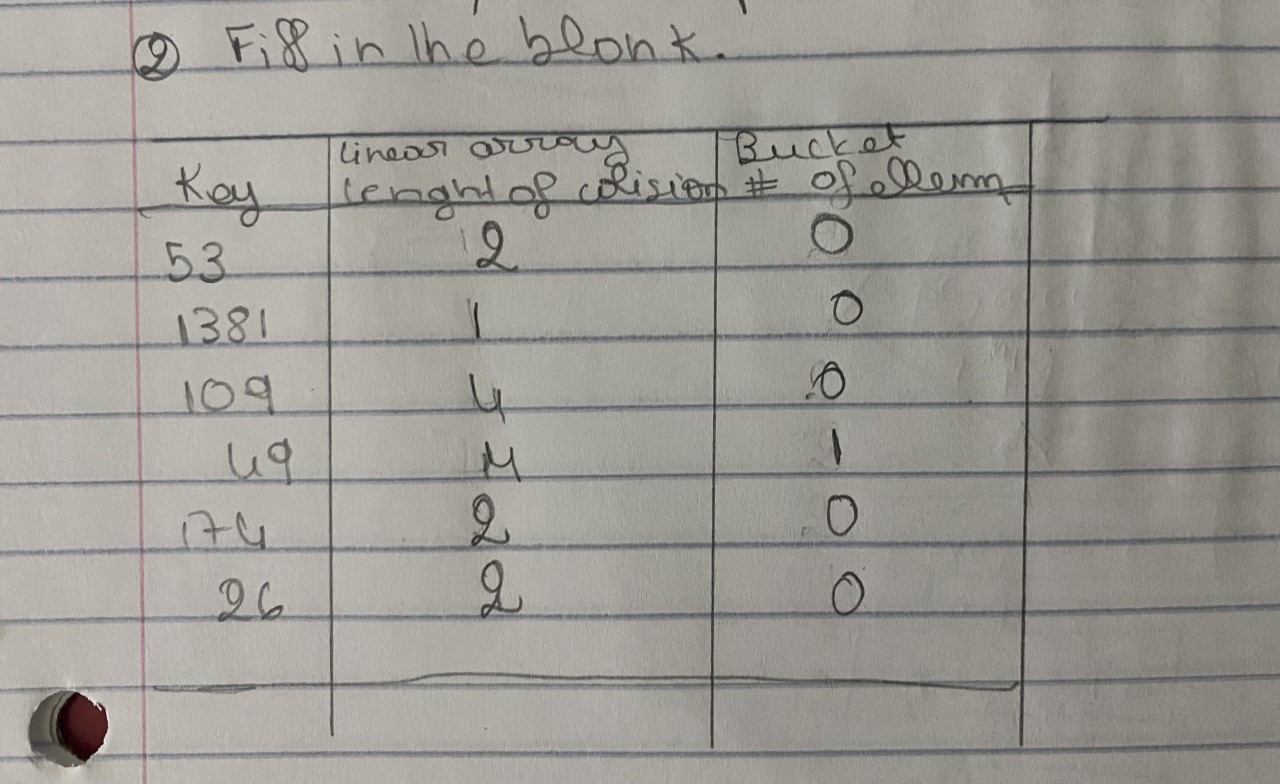 ② Fill in the blonk.
Key | linear array lenght of colision | Bucket # of ellem
53 | 2 | 0
1381 | 1 | 0
109 | 4 | 0
49 | 4 | 1
174 | 2 | 0
26 | 2 | 0